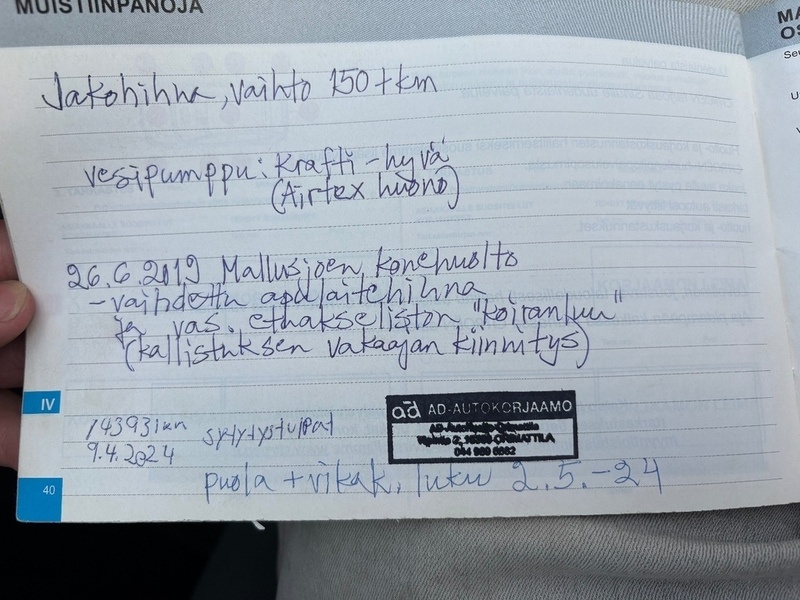 MUISTIINPANOJA
Jakohihna, vaihto 150 tkm
vesipumppu: Krafti - hyvä
(Airtex huono)
26.6.2019 Mallusjoen konehuolto
- vaihdettu apulaitehihna
ja vas. etuakseliston "koiranluu"
(kallistuksen vakaajan kiinnitys)
IV
143931km sytytystulpat
9.4.2024
ad AD-AUTOKORJAAMO
ORIMATTILA
puola + vikak. luku 2.5.-24
40
MA
OS